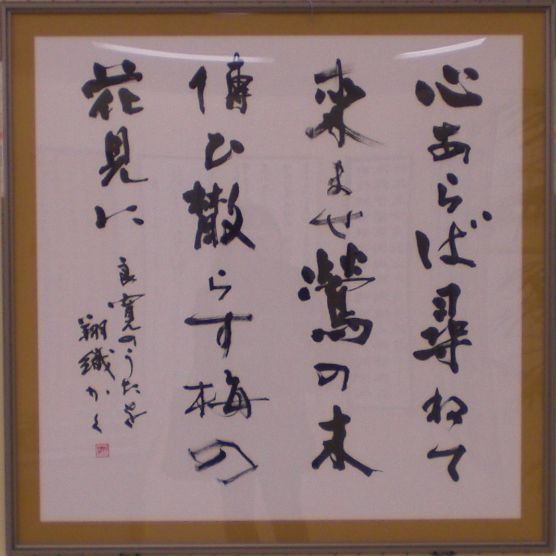 心あらば尋ねて
来ませ鶯の木
傳ひ散らす梅の
花見に
良寛のうたを
翔纖かく